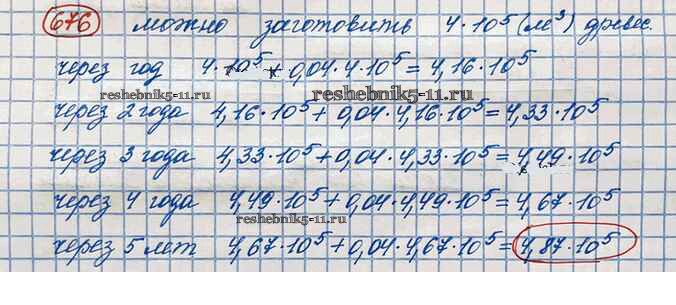 676 можно заготовить 4·10⁵ (м³) древес.
через год 4·10⁵ + 0,04·4·10⁵ = 4,16·10⁵
reshebnik5-11.ru reshebnik5-11.ru
через 2 года 4,16·10⁵ + 0,04·4,16·10⁵ = 4,33·10⁵
через 3 года 4,33·10⁵ + 0,04·4,33·10⁵ = 4,49·10⁵
через 4 года 4,49·10⁵ + 0,04·4,49·10⁵ = 4,67·10⁵
reshebnik5-11.ru
через 5 лет 4,67·10⁵ + 0,04·4,67·10⁵ = 4,87·10⁵